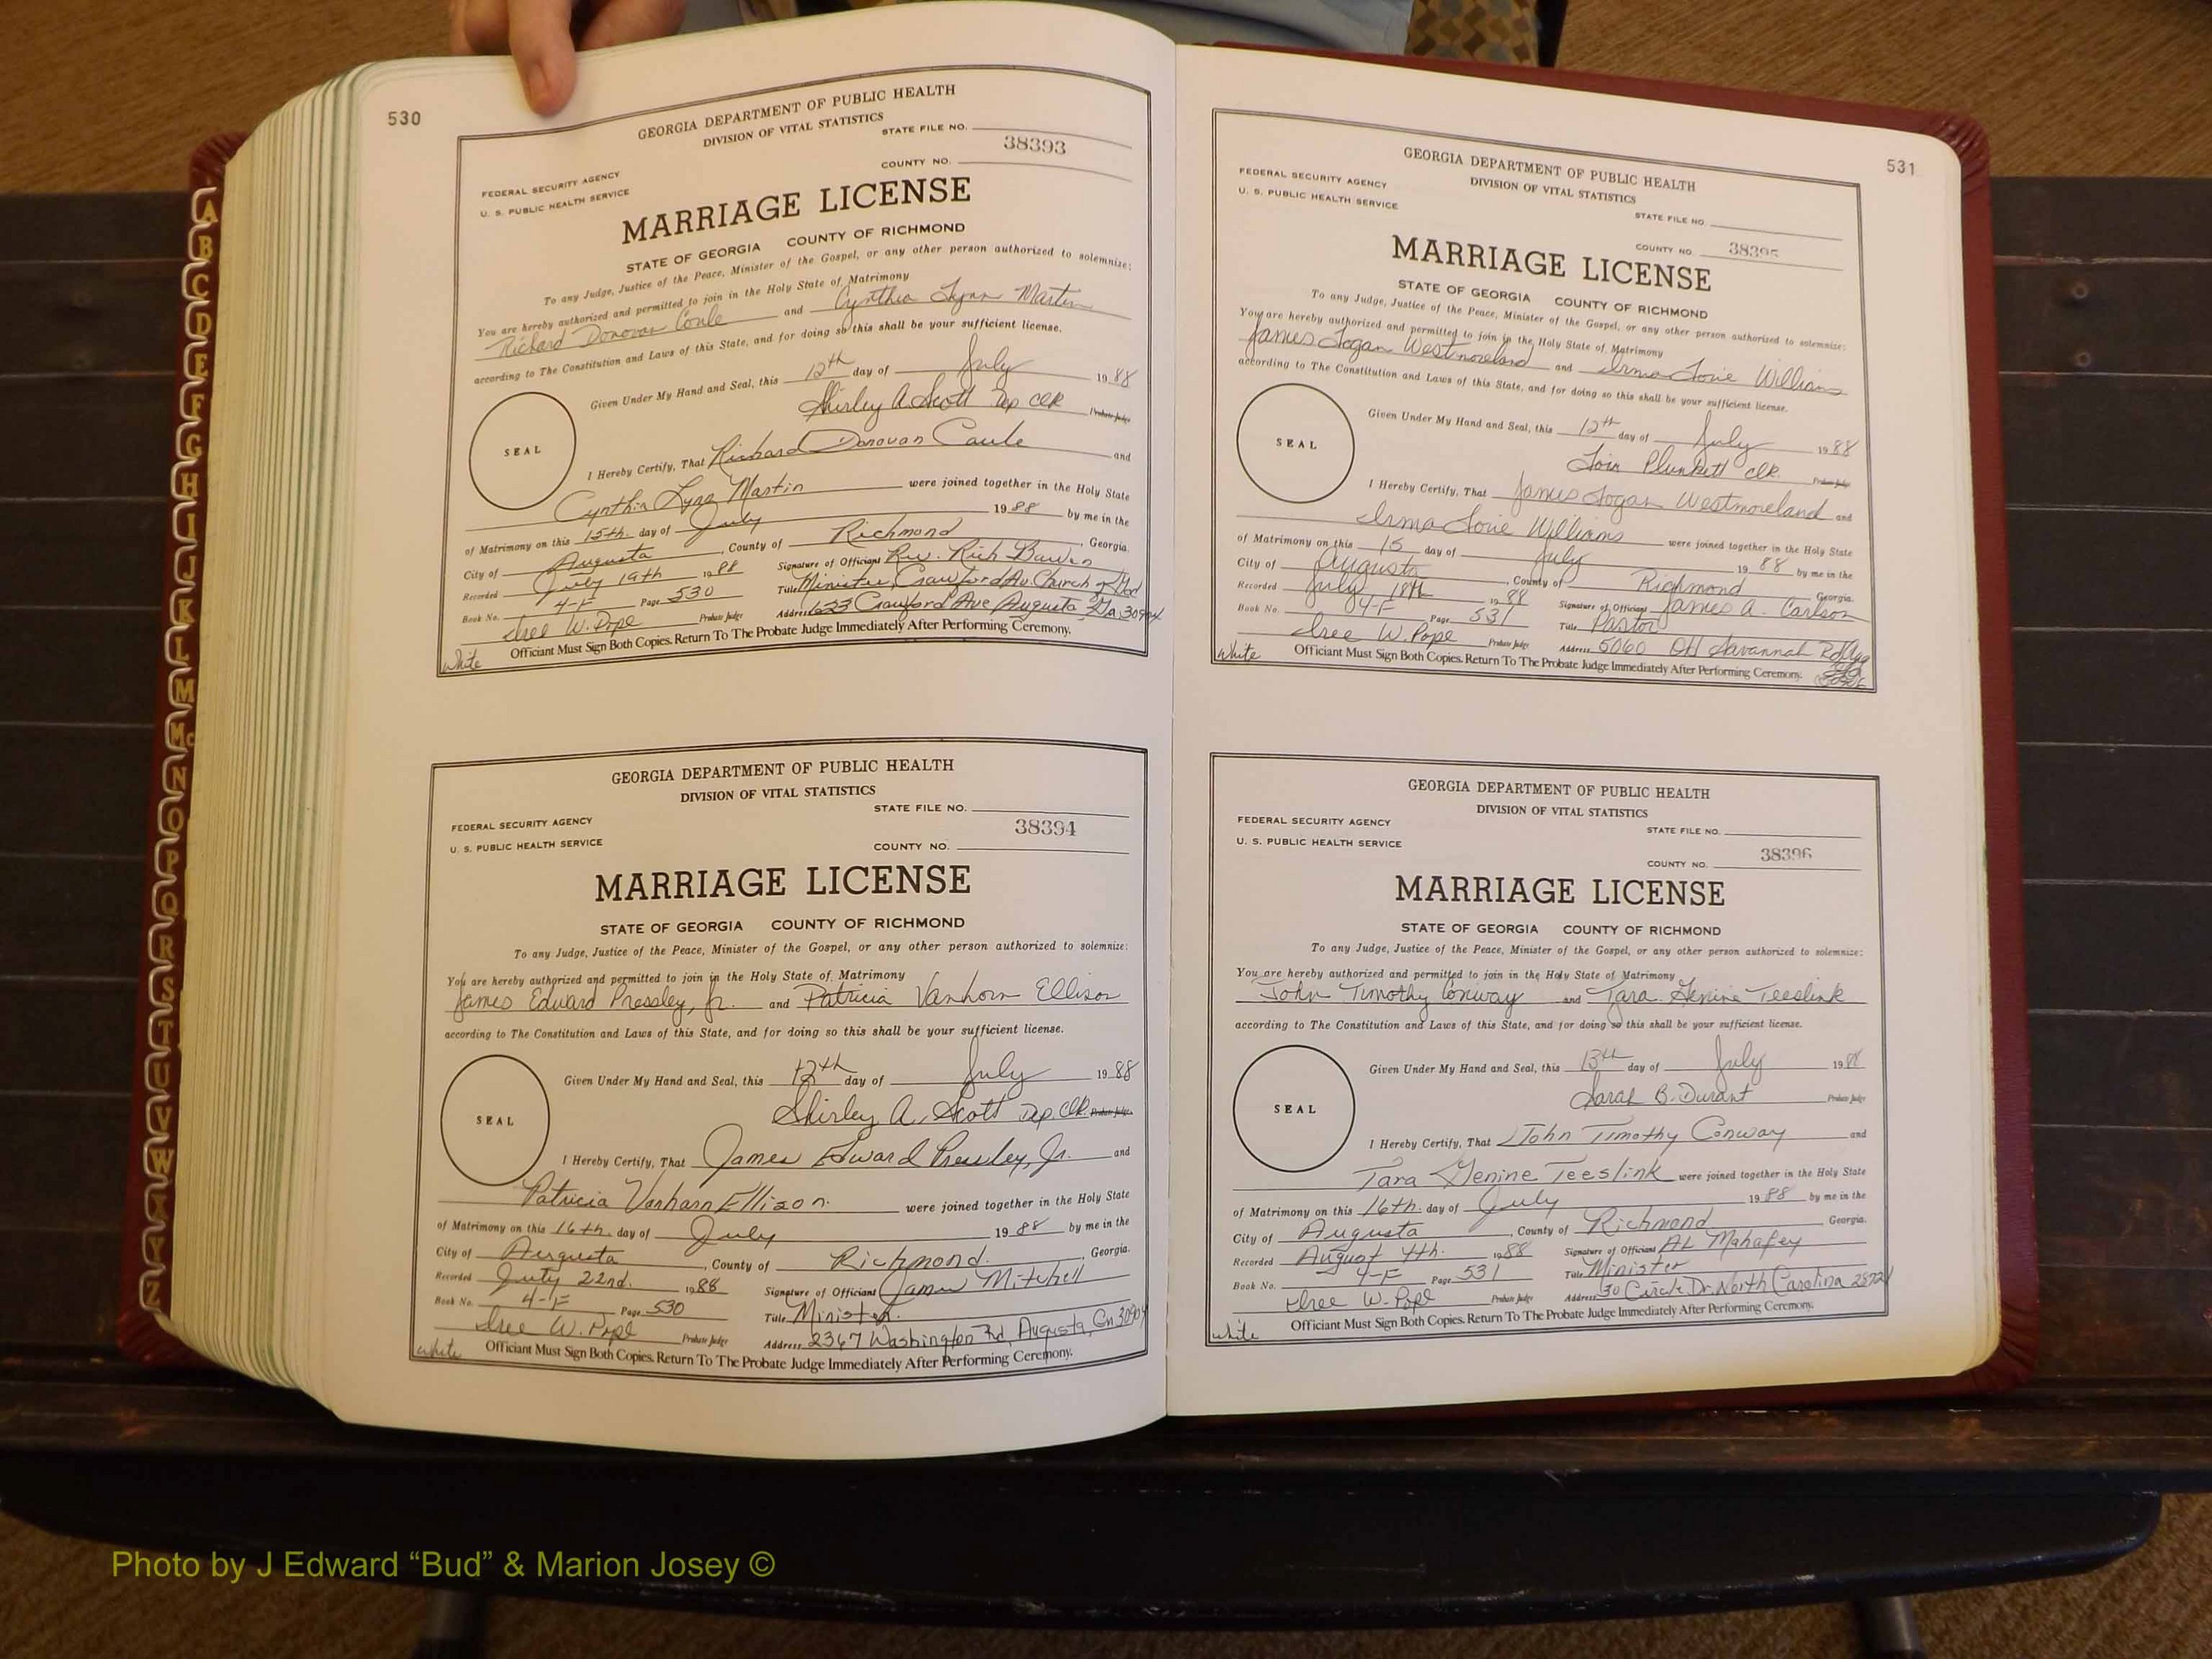 530
GEORGIA DEPARTMENT OF PUBLIC HEALTH
DIVISION OF VITAL STATISTICS
STATE FILE NO.
38393
COUNTY NO.
FEDERAL SECURITY AGENCY
U. S. PUBLIC HEALTH SERVICE
MARRIAGE LICENSE
STATE OF GEORGIA COUNTY OF RICHMOND
To any Judge, Justice of the Peace, Minister of the Gospel, or any other person authorized to solemnize:
You are hereby authorized and permitted to join in the Holy State of Matrimony
Richard Donovan and Cynthia Lynn Martin
according to The Constitution and Laws of this State, and for doing so this shall be your sufficient license.
Given Under My Hand and Seal, this 12th day of July 1988
Shirley A. Scott Dep Clk Probate Judge
SEAL
I Hereby Certify, That Richard Donovan and
Cynthia Lynn Martin were joined together in the Holy State
of Matrimony on this 15th. day of July 1988 by me in the
City of Augusta, County of Richmond, Georgia.
Recorded July 19th 1988 Signature of Officiant Rev. Rich
Book No. 4-F Page 530 Title Minister, Crawford Av. Church of God
Iree W. Pope Probate Judge Address 1633 Crawford Ave Augusta, Ga. 30904
white Officiant Must Sign Both Copies. Return To The Probate Judge Immediately After Performing Ceremony.
GEORGIA DEPARTMENT OF PUBLIC HEALTH
DIVISION OF VITAL STATISTICS
STATE FILE NO.
FEDERAL SECURITY AGENCY
38394
U. S. PUBLIC HEALTH SERVICE
COUNTY NO.
MARRIAGE LICENSE
STATE OF GEORGIA COUNTY OF RICHMOND
To any Judge, Justice of the Peace, Minister of the Gospel, or any other person authorized to solemnize:
You are hereby authorized and permitted to join in the Holy State of Matrimony
James Edward Pressley, Jr. and Patricia Vanhorn Ellison
according to The Constitution and Laws of this State, and for doing so this shall be your sufficient license.
Given Under My Hand and Seal, this 12th day of July 1988
Shirley A. Scott Dep. Clk. Probate Judge
SEAL
I Hereby Certify, That James Edward Pressley, Jr. and
Patricia Vanhorn Ellison were joined together in the Holy State
of Matrimony on this 16th. day of July 1988 by me in the
City of Augusta, County of Richmond, Georgia.
Recorded July 22nd. 1988 Signature of Officiant James Mitchell
Book No. 4-F Page 530 Title Minister.
Iree W. Pope Probate Judge Address 2367 Washington Rd, Augusta, Ga 30904
white Officiant Must Sign Both Copies. Return To The Probate Judge Immediately After Performing Ceremony.
531
GEORGIA DEPARTMENT OF PUBLIC HEALTH
DIVISION OF VITAL STATISTICS
FEDERAL SECURITY AGENCY
U. S. PUBLIC HEALTH SERVICE
STATE FILE NO.
COUNTY NO. 38395
MARRIAGE LICENSE
STATE OF GEORGIA COUNTY OF RICHMOND
To any Judge, Justice of the Peace, Minister of the Gospel, or any other person authorized to solemnize:
You are hereby authorized and permitted to join in the Holy State of Matrimony
James Logan Westmoreland and Irma Williams
according to The Constitution and Laws of this State, and for doing so this shall be your sufficient license.
Given Under My Hand and Seal, this 12th day of July 1988
Plunkett Clk. Probate Judge
SEAL
I Hereby Certify, That James Logan Westmoreland and
Irma Williams were joined together in the Holy State
of Matrimony on this 15 day of July 1988 by me in the
City of Augusta, County of Richmond Georgia.
Recorded July 18th 1988 Signature of Officiant James A. Carlson
Book No. 4-F Page 531 Title Pastor
Iree W. Pope Probate Judge Address 5060 Old Savannah Rd
white Officiant Must Sign Both Copies. Return To The Probate Judge Immediately After Performing Ceremony.
GEORGIA DEPARTMENT OF PUBLIC HEALTH
DIVISION OF VITAL STATISTICS
FEDERAL SECURITY AGENCY
STATE FILE NO.
U. S. PUBLIC HEALTH SERVICE
38396
COUNTY NO.
MARRIAGE LICENSE
STATE OF GEORGIA COUNTY OF RICHMOND
To any Judge, Justice of the Peace, Minister of the Gospel, or any other person authorized to solemnize:
You are hereby authorized and permitted to join in the Holy State of Matrimony
John Timothy Conway and Tara Genine Teeslink
according to The Constitution and Laws of this State, and for doing so this shall be your sufficient license.
Given Under My Hand and Seal, this 13th day of July 1988
Sarah B. Durant Probate Judge
SEAL
I Hereby Certify, That John Timothy Conway and
Tara Genine Teeslink were joined together in the Holy State
of Matrimony on this 16th. day of July 1988 by me in the
City of Augusta, County of Richmond Georgia.
Recorded August 4th. 1988 Signature of Officiant AL Mahafey
Book No. 4-F Page 531 Title Minister
Iree W. Pope Probate Judge Address 30 Circle Dr. North Carolina
white Officiant Must Sign Both Copies. Return To The Probate Judge Immediately After Performing Ceremony.
A
B
C
D
E
F
G
H
I
J
K
L
M
Mc
N
O
P
Q
R
S
T
U
V
W
X
Y
Z
Photo by J Edward “Bud” & Marion Josey ©